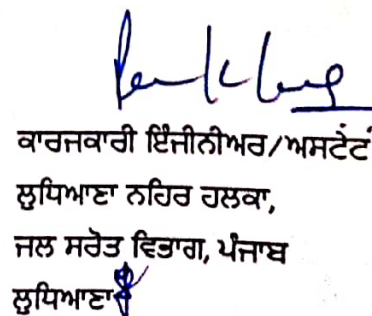 ਕਾਰਜਕਾਰੀ ਇੰਜੀਨੀਅਰ/ਅਸਟੇਟ
ਲੁਧਿਆਣਾ ਨਹਿਰ ਹਲਕਾ,
ਜਲ ਸਰੋਤ ਵਿਭਾਗ, ਪੰਜਾਬ
ਲੁਧਿਆਣਾ